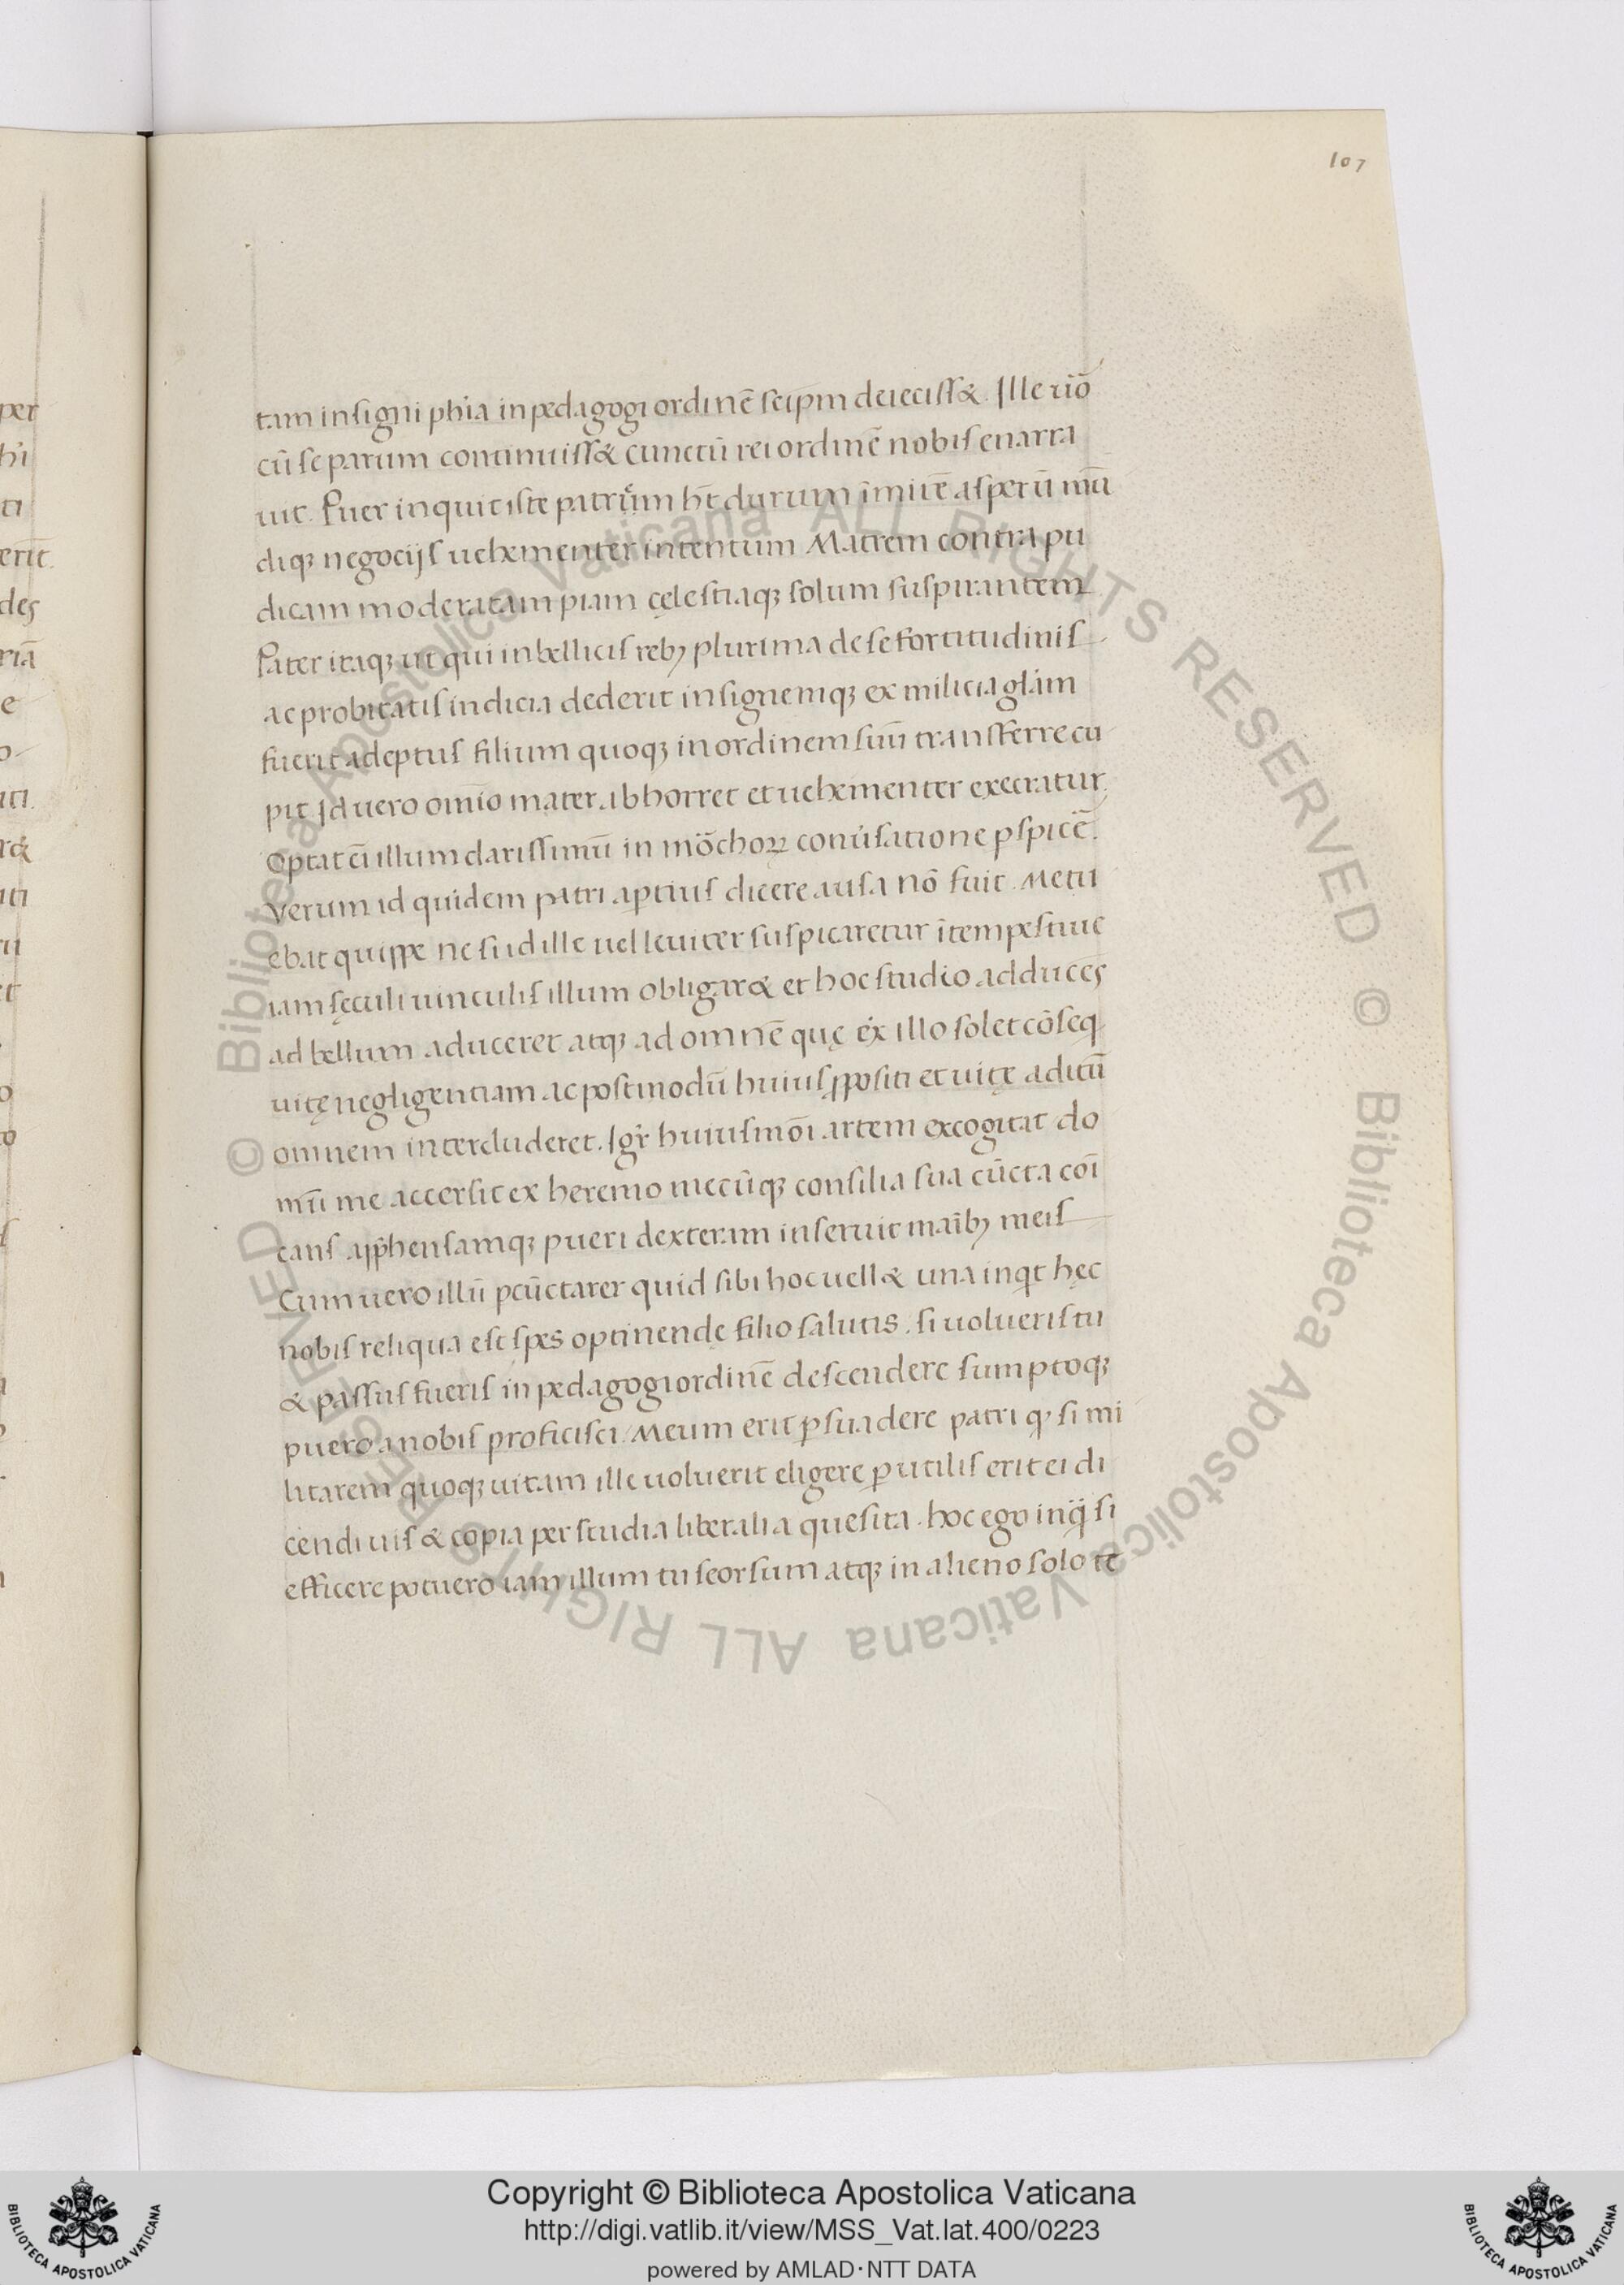 107
tam insigni phia in pedagogi ordinē seipm deiecisset. Ille uo
cū se parum continuisset cunctū rei ordinē nobis enarra
uit. Puer inquit iste patrem ht durum īmitē asperū mū
diq; negocijs uehementer intentum Matrem contra pu
dicam moderatam piam cęlestiaq; solum suspirantem
Pater itaq; ut qui in bellicis reb; plurima de se fortitudinis
ac probitatis indicia dederit insignemq; ex milicia glam
fuerit adeptus filium quoq; in ordinem suū transferre cu
pit Id uero omio mater abhorret et uehementer execratur
Optat eī illum clarissimū in mōchoꝝ conuersatione pspicē.
Verum id quidem patri aptius dicere ausa nō fuit. Metu
ebat quippe ne si id ille uel leuiter suspicaretur ītempestiue
iam sęculi uinculis illum obligaret et hoc studio adducēs
ad bellum aduceret atq; ad omnē quę ex illo solet cōseq
uitę negligentiam ac postmodū huius ꝓpositi et uitę aditū
omnem intercluderet. Igr huiusmōi artem excogitat do
mū me accersit ex heremo mecūq; consilia sua cūcta coī
cans apphensamq; pueri dexteram inseruit maīb; meis
Cum uero illū pcūctarer quid sibi hoc uellet una inqt hęc
nobis reliqua est spes optinendę filio salutis. si uolueris tu
et passus fueris in pedagogi ordinē descendere sumptoq;
puero a nobis proficisci. Meum erit ꝑsuadere patri q; si mi
litarem quoq; uitam ille uoluerit eligere ꝑutilis erit ei di
cendi uis et copia per studia liberalia quesita. hoc ego inq̄ si
efficere potuero iam illum tu seorsum atq; in alieno solo te
Copyright © Biblioteca Apostolica Vaticana
http://digi.vatlib.it/view/MSS_Vat.lat.400/0223
powered by AMLAD·NTT DATA
BIBLIOTECA APOSTOLICA VATICANA
BIBLIOTECA APOSTOLICA VATICANA
© Biblioteca Apostolica Vaticana ALL RIGHTS RESERVED © Biblioteca Apostolica Vaticana ALL RIGHTS RESERVED